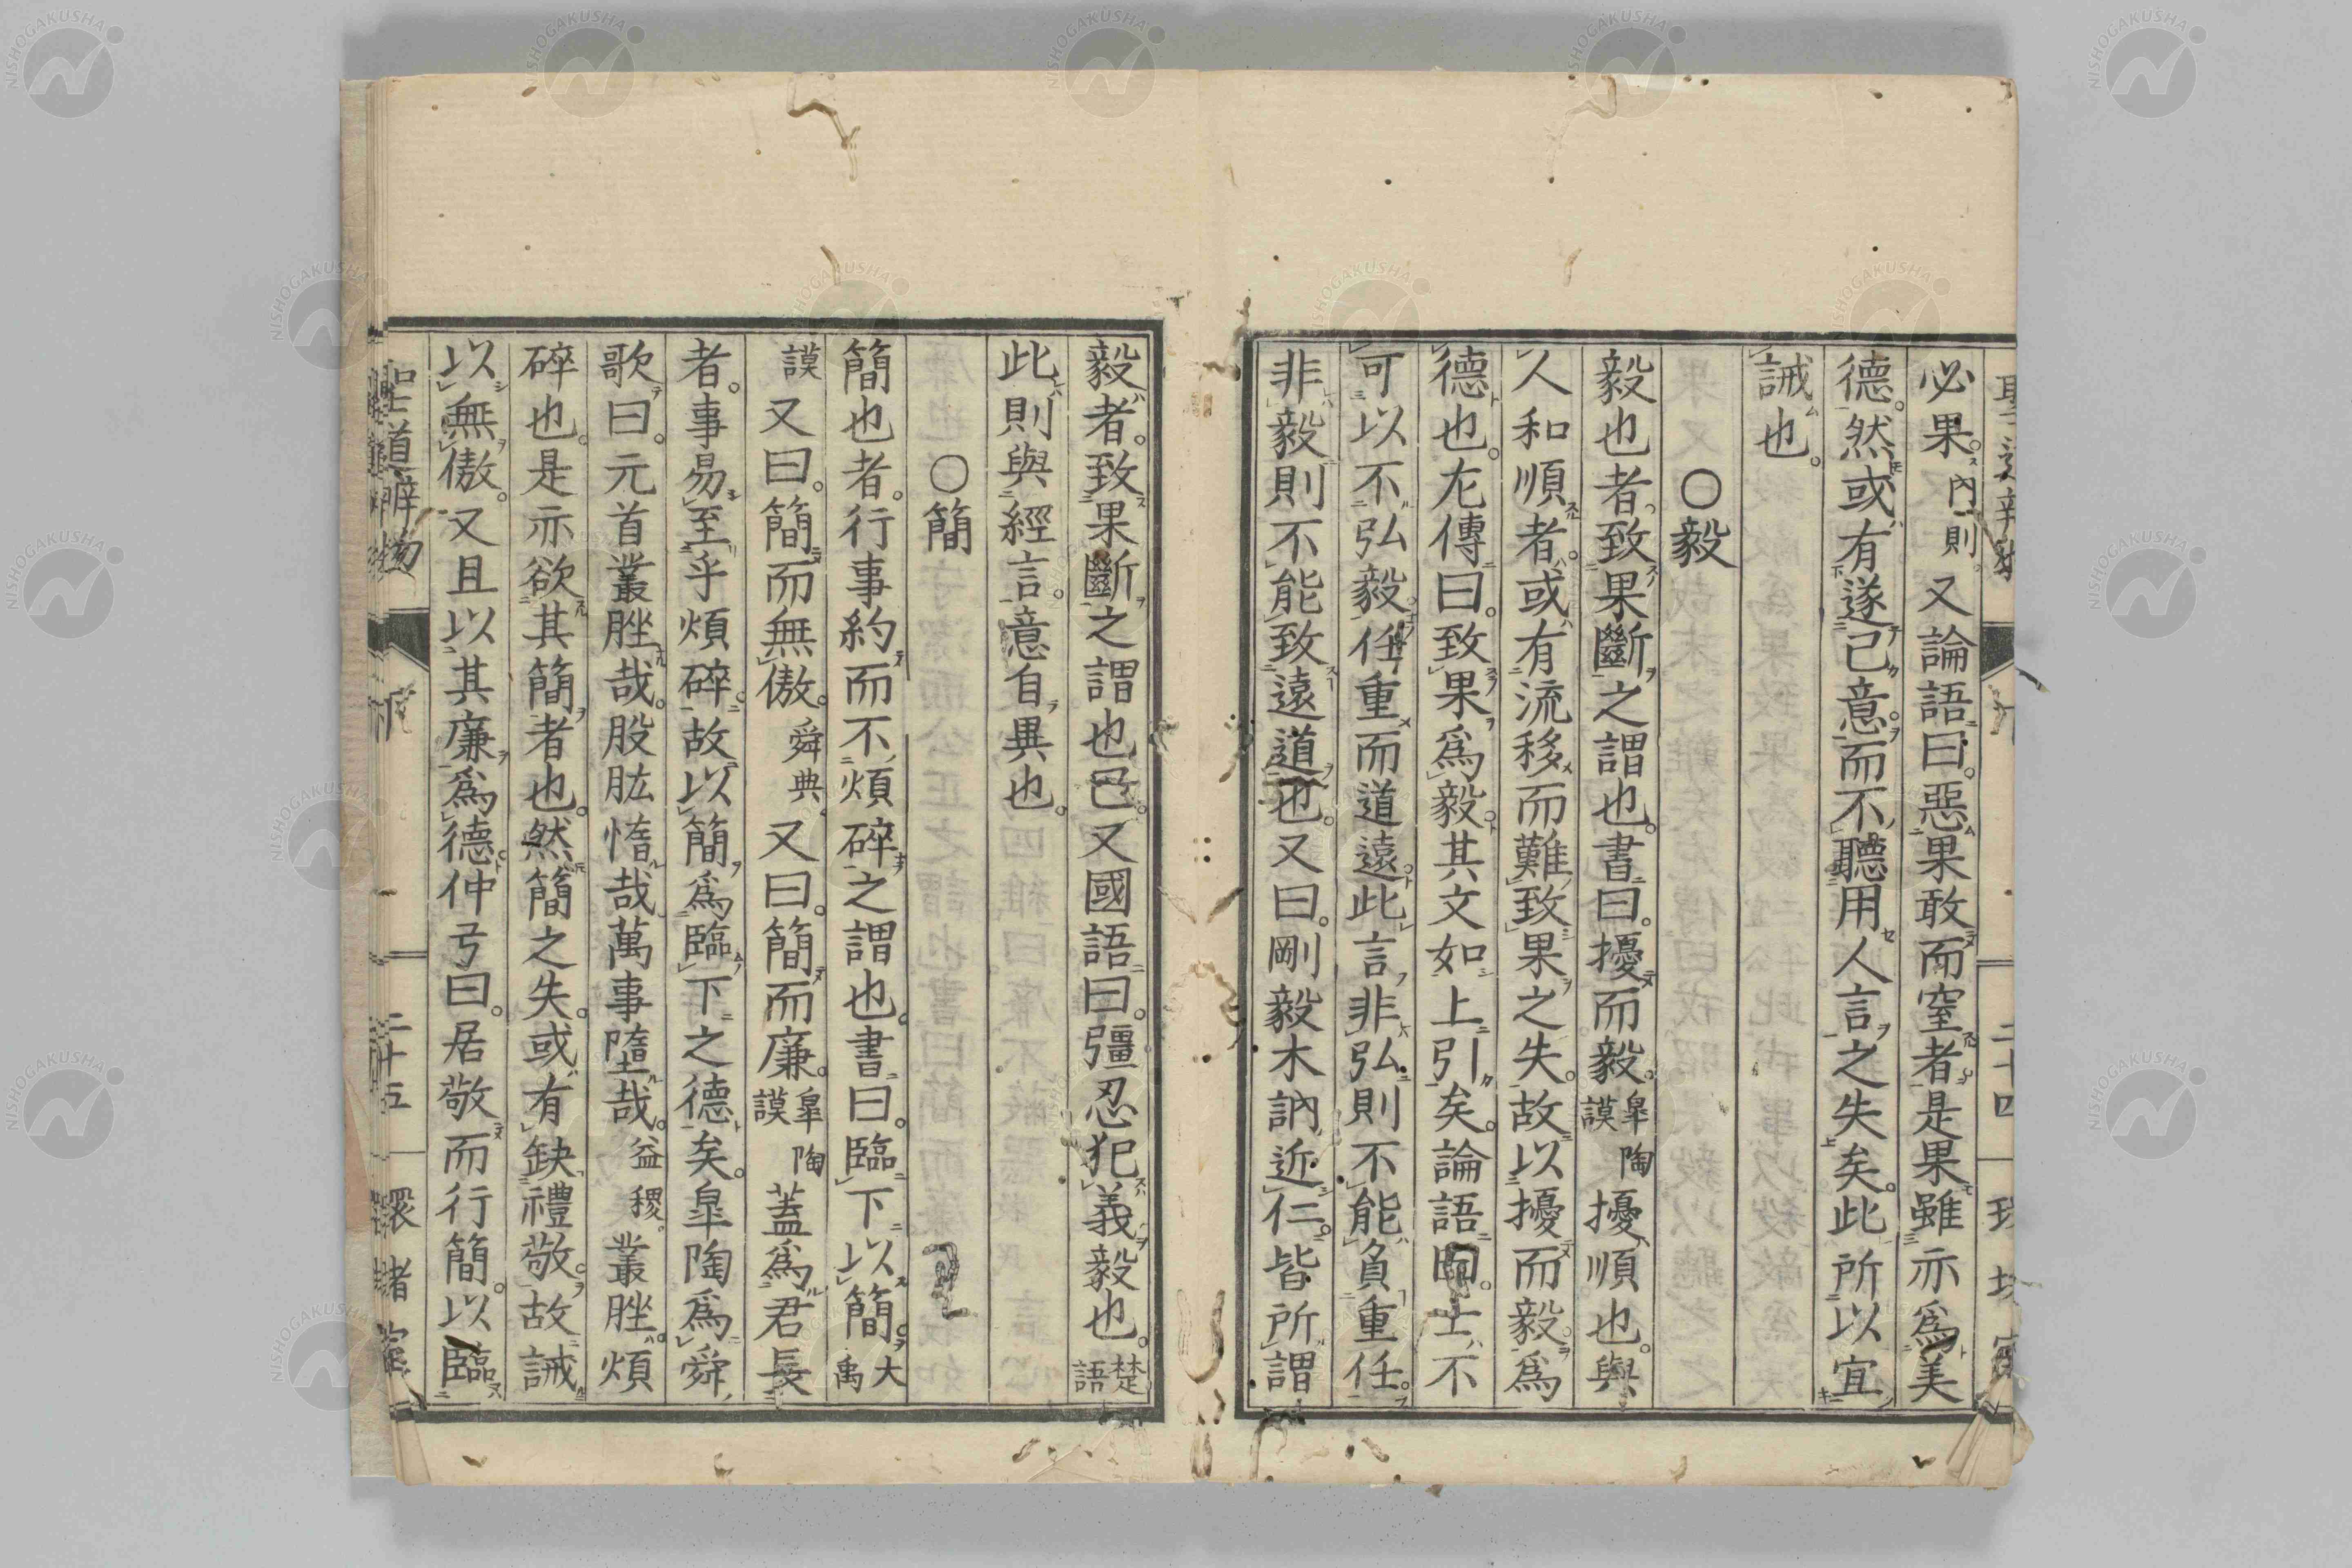 必果。內則。又論語曰。惡果敢而窒者。是果雖亦爲美
德。然或有遂己意。而不聽用人言之失矣。此所以宜
誡也。
○毅
毅也者。致果斷之謂也。書曰。擾而毅。皐陶謨擾順也。與
人和順者。或有流移而難致果之失。故以擾而毅。爲
德也。左傳曰。致果爲毅。其文如上引矣。論語曰。士不
可以不弘毅。任重而道遠。此言非弘則不能負重任。
非毅則不能致遠道也。又曰。剛毅木訥近仁。皆所謂
毅者。致果斷之謂也已。又國語曰。彊忍犯義毅也。楚語
此則與經言。意自異也。
○簡
簡也者。行事約而不煩碎之謂也。書曰。臨下以簡。大禹
謨又曰。簡而無傲。舜典。又曰。簡而廉。皐陶謨蓋爲君長
者。事易至乎煩碎。故以簡爲臨下之德矣。皐陶爲舜
歌曰。元首叢脞哉。股肱惰哉。萬事墮哉。益稷。叢脞。煩
碎也。是亦欲其簡者也。然簡之失。或有缺禮敬。故誡
以無傲。又且以其廉爲德。仲弓曰。居敬而行簡。以臨
聖道辨物
二十五
環堵室
二十四
NISHOGAKUSHA